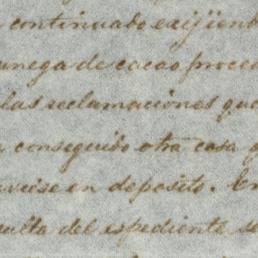 continuado exijiend
anega de cacao proce
las reclamaciones que
conseguido otra cosa q
en deposito. En
sulta del espediente se